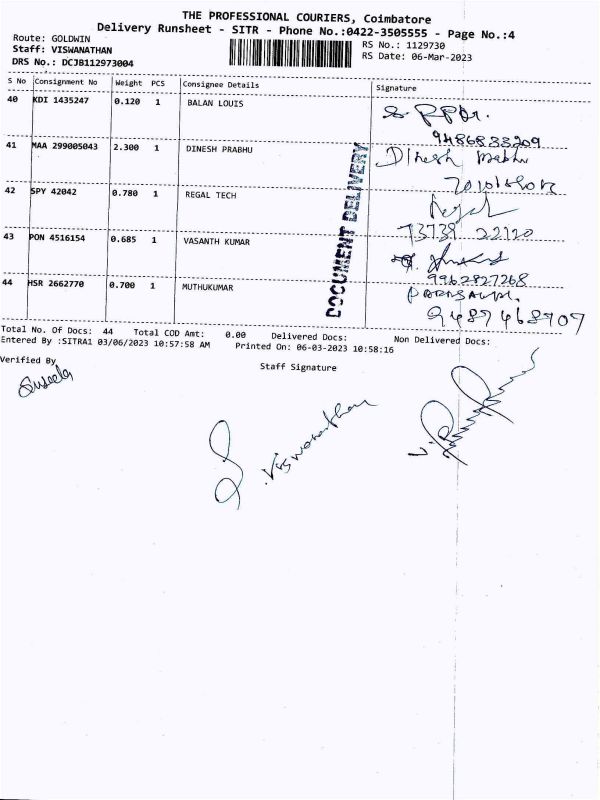 THE PROFESSIONAL COURIERS, Coimbatore
Delivery Runsheet - SITR - Phone No.:0422-3505555 - Page No.:4
Route: GOLDWIN
Staff: VISWANATHAN
DRS No.: DCJB112973004
RS No.: 1129730
RS Date: 06-Mar-2023
S No Consignment No Weight PCS Consignee Details Signature
40 KDI 1435247 0.120 1 BALAN LOUIS
9486833209
41 MAA 299005043 2.300 1 DINESH PRABHU Dinesh
42 SPY 42042 0.780 1 REGAL TECH Regal
73739 22120
43 PON 4516154 0.685 1 VASANTH KUMAR
9962927268
44 HSR 2662770 0.700 1 MUTHUKUMAR
9487468907
DOCUMENT DELIVERY
Total No. Of Docs: 44 Total COD Amt: 0.00 Delivered Docs: Non Delivered Docs:
Entered By :SITRA1 03/06/2023 10:57:58 AM Printed On: 06-03-2023 10:58:16
Verified By
Staff Signature
Suseela
Viswanathan